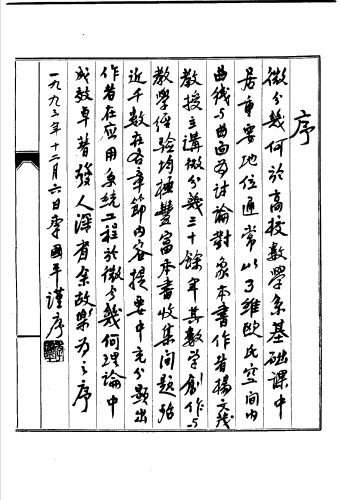 序
微分幾何於高校数学系基础课中
居重要地位通常以3维欧氏空间内
曲线与曲面为讨論對象本書作者楊文茂
教授主講微分幾何三十餘年其数学創作与
教学经验均極豐富本書收集问题殆
近千数在各章節内容提要中充分顕出
作者在应用系统工程於微分幾何理論中
成效卓著發人深省余故樂为之序
一九九三年十二月六日李國平謹序